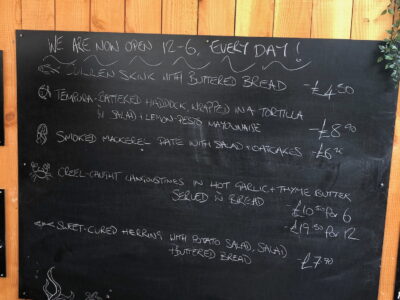 WE ARE NOW OPEN 12-6, EVERY DAY!
CULLEN SKINK WITH BUTTERED BREAD -£4.50
TEMPURA-BATTERED HADDOCK, WRAPPED IN A TORTILLA
W SALAD + LEMON-PESTO MAYONNAISE -£8.90
SMOKED MACKEREL PATE WITH SALAD + OATCAKES -£6.
CREEL-CAUGHT LANGOUSTINES IN HOT GARLIC + THYME BUTTER
SERVED W BREAD
-£10.50 PER 6
-£19.50 PER 12
SWEET-CURED HERRING WITH POTATO SALAD, SALAD
+ BUTTERED BREAD -£7.90